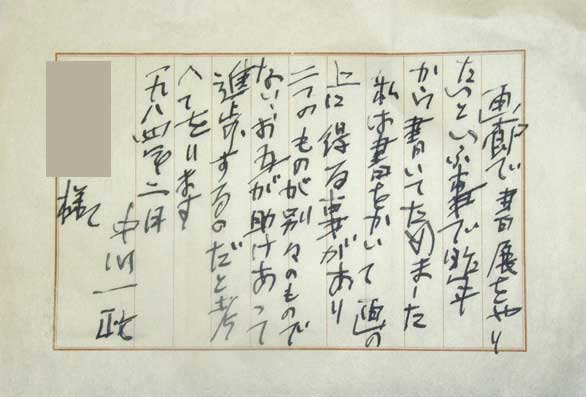 画廊で書展をやり
たいといふ事で昨年
から書いてためました
私は書をかいて画の
上に得る事があり
二つのものが別々のもので
ない、お互が助けあって
進歩するのだと考
へてをります
一九八四年二月
中川一政
様